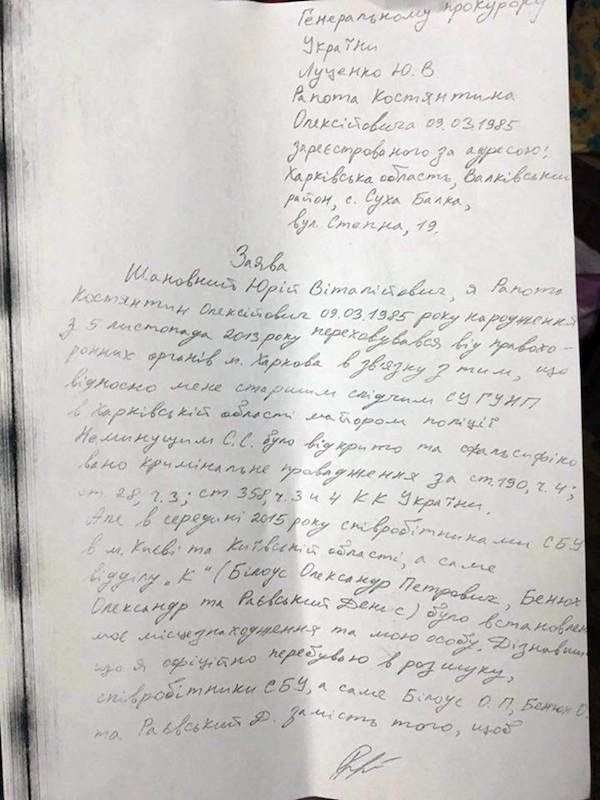 Генеральному прокурору
України
Луценко Ю. В
Рапота Костянтина
Олексійовича 09.03.1985
зареєстрованого за адресою:
Харківська область, Валківський
район, с. Суха Балка,
вул. Степна, 19.
Заява
Шановний Юрій Віталійович, я Рапота
Костянтин Олексійович 09.03.1985 року народження
з 5 листопада 2013 року переховувався від правохо-
ронних органів м. Харкова в зв'язку з тим, що
відносно мене старшим слідчим СУ ГУНП
в Харківській області майором поліції
Неминущим С.С. було відкрито та сфальсифіко
вано кримінальне провадження за ст. 190, ч. 4;
ст. 28, ч. 3; ст 358, ч. 3 и 4 КК України.
Але в середині 2015 року співробітниками СБУ
в м. Києві та Київській області, а саме
відділу "К" (Білоус Олександр Петрович, Бенюх
Олександр та Раєвський Денис) було встановлен
моє місцезнаходження та мою особу. Дізнавши
що я офіційно перебуваю в розшуку,
співробітники СБУ, а саме Білоус О. П, Бенюх О.
та Раєвський Д. замість того, щоб